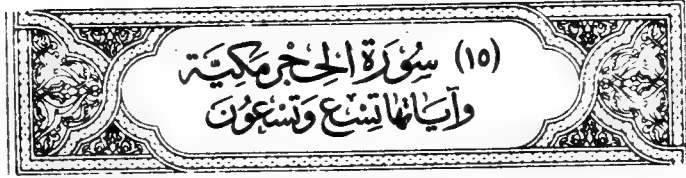 (١٥) سُورَةُ الْحِجْرِ مَكِيَّة
وَآيَاتُهَا تِسْعٌ وَتِسْعُونَ